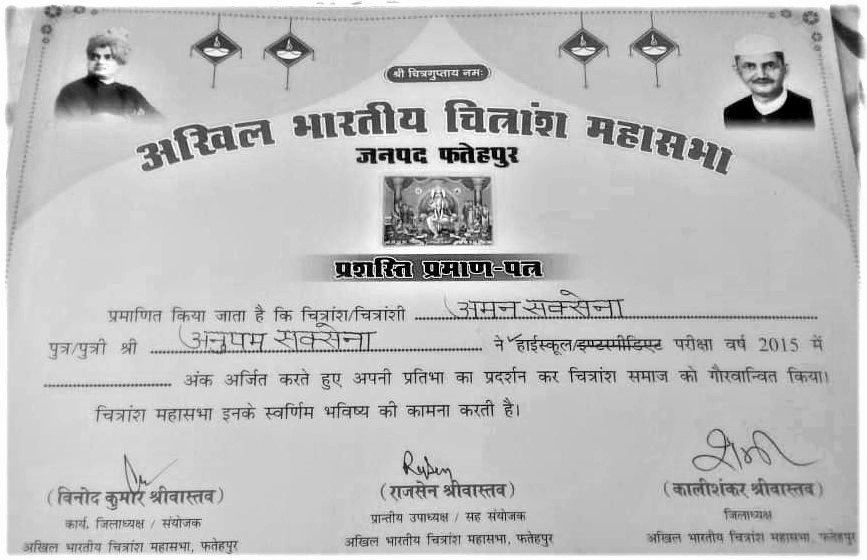 श्री चित्रगुप्ताय नमः
अखिल भारतीय चित्रांश महासभा
जनपद फतेहपुर
प्रशस्ति प्रमाण-पत्र
प्रमाणित किया जाता है कि चित्रांश/चित्रांशी अमन सक्सेना
पुत्र/पुत्री श्री अनुपम सक्सेना ने हाईस्कूल/इण्टरमीडिएट परीक्षा वर्ष 2015 में
अंक अर्जित करते हुए अपनी प्रतिभा का प्रदर्शन कर चित्रांश समाज को गौरवान्वित किया।
चित्रांश महासभा इनके स्वर्णिम भविष्य की कामना करती है।
(विनोद कुमार श्रीवास्तव) (राजसेन श्रीवास्तव) (कालीशंकर श्रीवास्तव)
कार्य. जिलाध्यक्ष / संयोजक प्रान्तीय उपाध्यक्ष / सह संयोजक जिलाध्यक्ष
अखिल भारतीय चित्रांश महासभा, फतेहपुर अखिल भारतीय चित्रांश महासभा, फतेहपुर अखिल भारतीय चित्रांश महासभा, फतेहपुर